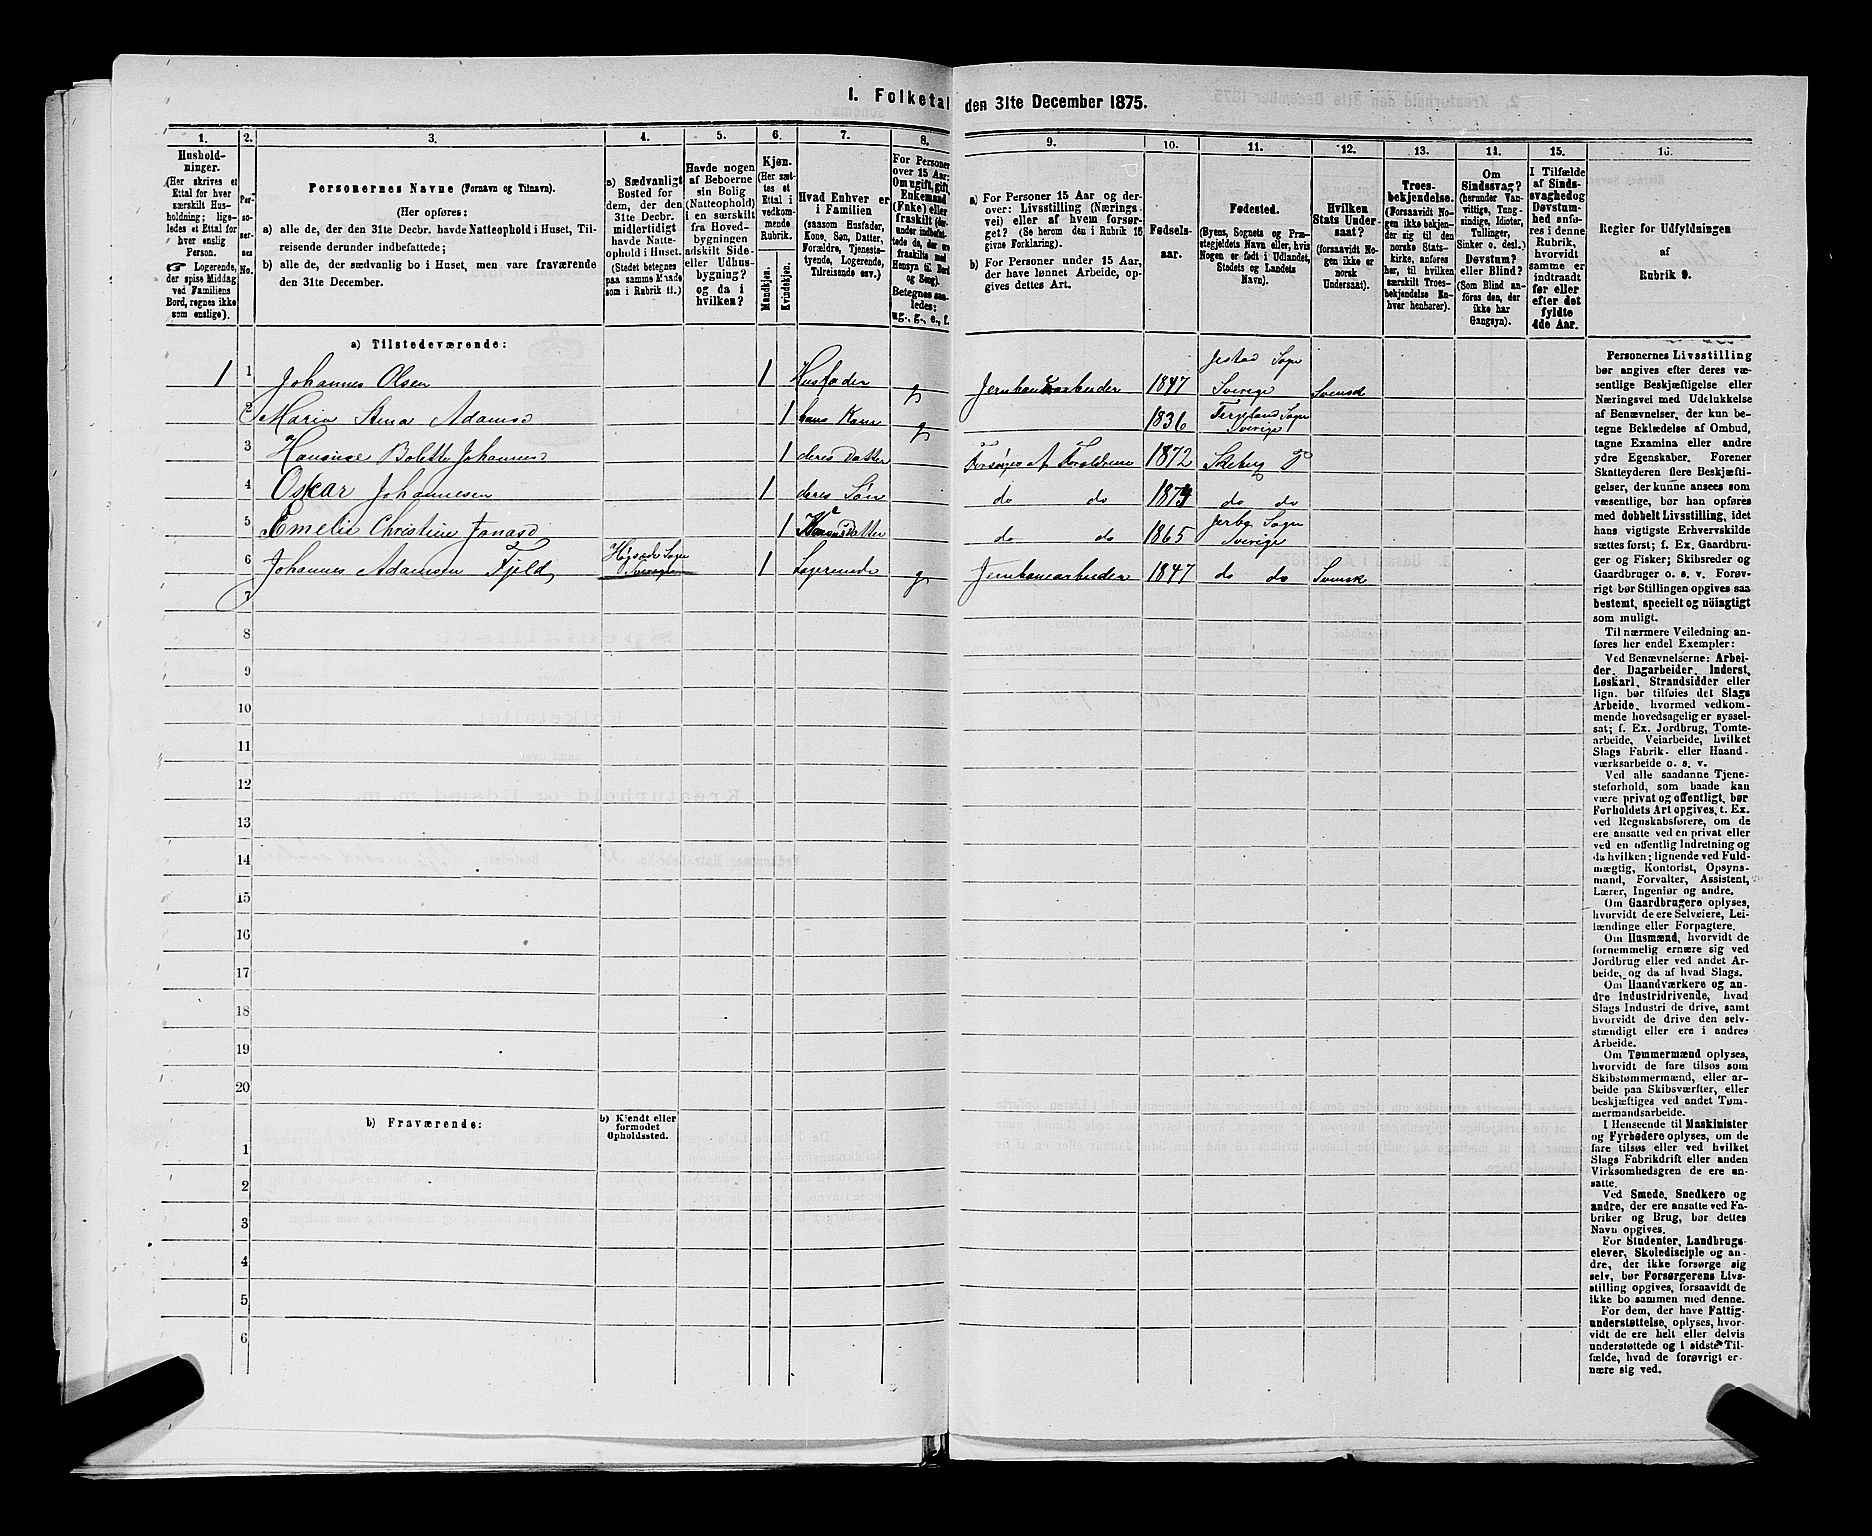 1. Folketal den 31te December 1875.
1. 2. 3. 4. 5. 6. 7. 8. 9. 10. 11. 12. 13. 14. 15. 16.
Hushold-
ninger.
(Her skrives et
Ettal for hver
særskilt Hus-
holdning; lige-
ledes et Ettal for
hver enslig
Person.
☞ Logerende,
der spise Middag
ved Familiens
Bord, regnes ikke
som enslige).
Per-
so-
ner-
nes
No.
Personernes Navne (Fornavn og Tilnavn).
(Her opføres:
a) alle de, der den 31te Decbr. havde Natteophold i Huset, Til-
reisende derunder indbefattede;
b) alle de, der sædvanlig bo i Huset, men vare fraværende
den 31te December.
a) Sædvanligt
Bosted for
dem, der den
31te Decbr.
midlertidigt
havde Natte-
ophold i Huset.
(Stedet betegnes
paa samme Maade
som i Rubrik 11.)
Havde nogen
af Beboerne
sin Bolig
(Natteophold)
i en særskilt
fra Hoved-
bygningen
adskilt Side-
eller Udhus-
bygning?
og da i
hvilken?
Kjøn.
(Her sæt-
tes et
Ettal i
vedkom-
mende
Rubrik.
Mandkjøn.
Kvindekjøn.
Hvad Enhver er
i Familien
(saasom Husfader,
Kone, Søn, Datter,
Forældre, Tjeneste-
tyende, Logerende,
Tilreisende osv.)
For Personer
over 15 Aar:
Om ugift, gift,
Enkemand
(Enke) eller
fraskilt (der-
under indbefat-
tede de, der ere
fraskilte med
Hensyn til Bord
og Seng).
Betegnes saa-
ledes:
ug., g., e., f.
a) For Personer 15 Aar og der-
over: Livsstilling (Nærings-
vei) eller af hvem forsør-
get? (Se herom den i Rubrik 16
givne Forklaring).
b) For Personer under 15 Aar,
der have lønnet Arbeide, op-
gives dettes Art.
Fødsels-
aar.
Fødested.
(Byens, Sognets og Præ-
stegjeldets Navn eller, hvis
Nogen er født i Udlandet,
Stedets og Landets
Navn).
Hvilken
Stats Under-
saat?
(forsaavidt No-
gen ikke er
norsk
Undersaat).
Troes-
bekjendelse.
(Forsaavidt No-
gen ikke bekjen-
der sig til den
norske Stats-
kirke, anføres
her, til hvilken
særskilt Troes-
bekjendelse En-
hver henhører).
Om
Sindssvag?
(herunder Van-
vittige, Tung-
sindige, Idioter,
Tullinger,
Sinker o. desl.)
Døvstum?
eller Blind?
(Som Blind an-
føres den, der
ikke har
Gangsyn).
I Tilfælde
af Sinds-
svaghed og
Døvstum-
hed anfø-
res i denne
Rubrik,
hvorvidt
samme er
indtraadt
før eller
efter det
fyldte
4de Aar.
Regler for Udfyldningen
af
Rubrik 9.
a) Tilstedeværende:
1 1 Johannes Olsen 1 Husfader g Jernbanearbeider 1847 Jestad Sogn Sverige Svensk
2 Maria Stina Adamsd 1 hans Kone g 1836 Sogn Sverige
3 Hansine Bolette Johannesd 1 deres Datter Forsørges af Forældrene 1872 Skeberg Pr
4 Oskar Johannesen 1 deres Søn do do 1874 do do
5 Emelie Christine Jonasd 1 Konens Datter do do 1865 Jerbo Sogn Sverige
6 Johannes Adamsen Fjeld Sogn Sverige 1 Logerende g Jernbanearbeider 1847 do do Svensk
7
8
9
10
11
12
13
14
15
16
17
18
19
20
b) Fraværende:
b) Kjendt eller
formodet
Opholdssted.
1
2
3
4
5
6
Personernes Livsstilling
bør angives efter deres væ-
sentlige Beskjæftigelse eller
Næringsvei med Udelukkelse
af Benævnelser, der kun be-
tegne Beklædelse af Ombud,
tagne Examina eller andre
ydre Egenskaber. Forener
Skatteyderen flere Beskjæfti-
gelser, der kunne ansees som
væsentlige, bør han opføres
med dobbelt Livsstilling, idet
hans vigtigste Erhvervskilde
sættes først; f. Ex. Gaardbru-
ger og Fisker; Skibsreder og
Gaardbruger o. s. v. Forøv-
rigt bør Stillingen opgives saa
bestemt, specielt og nøiagtigt
som muligt.
Til nærmere Veiledning an-
føres her endel Exempler:
Ved Benævnelserne: Arbei-
der, Dagarbeider, Inderst,
Løskarl, Strandsidder eller
lign. bør tilføies det Slags
Arbeide, hvormed vedkom-
mende hovedsagelig er syssel-
sat; f. Ex. Jordbrug, Tomte-
arbeide, Veiarbeide, hvilket
Slags Fabrik- eller Haand-
værksarbeide o. s. v.
Ved alle saadanne Tjene-
steforhold, som baade kan
være privat og offentligt, bør
Forholdets Art opgives, t. Ex.
ved Regnskabsførere, om de
ere ansatte ved en privat eller
ved en offentlig Indretning og
da hvilken; lignende ved Fuld-
mægtig, Kontorist, Opsyns-
mand, Forvalter, Assistent,
Lærer, Ingeniør og andre.
Om Gaardbrugere oplyses,
hvorvidt de ere Selveiere, Lei-
lændinge eller Forpagtere.
Om Husmænd, hvorvidt de
fornemmelig ernære sig ved
Jordbrug eller ved andet Ar-
beide, og da af hvad Slags.
Om Haandværkere og an-
dre Industridrivende, hvad
Slags Industri de drive, samt
hvorvidt de drive den selv-
stændigt eller ere i andres
Arbeide.
Om Tømmermænd oplyses,
hvorvidt de fare tilsøs som
Skibstømmermænd, eller ar-
beide paa Skibsværfter, eller
beskjæftiges ved andet Tøm-
mermandsarbeide.
I Henseende til Maskinister
og Fyrbødere oplyses, om de
fare tilsøs eller ved hvilket
Slags Fabrikdrift eller anden
Virksomhedsgren de ere an-
satte.
Ved Smede, Snedkere og
andre, der ere ansatte ved Fa-
briker og Brug, bør dettes
Navn opgives.
For Studenter, Landbrugs-
elever, Skoledisciple og an-
dre, der ikke forsørge sig
selv, bør Forsørgerens Livs-
stilling opgives, forsaavidt de
ikke bo sammen med denne.
For dem, der have Fattig-
understøttelse, oplyses, hvor-
vidt de ere helt eller delvis
understøttede og i sidste Til-
fælde, hvad de forøvrigt er-
nære sig ved.